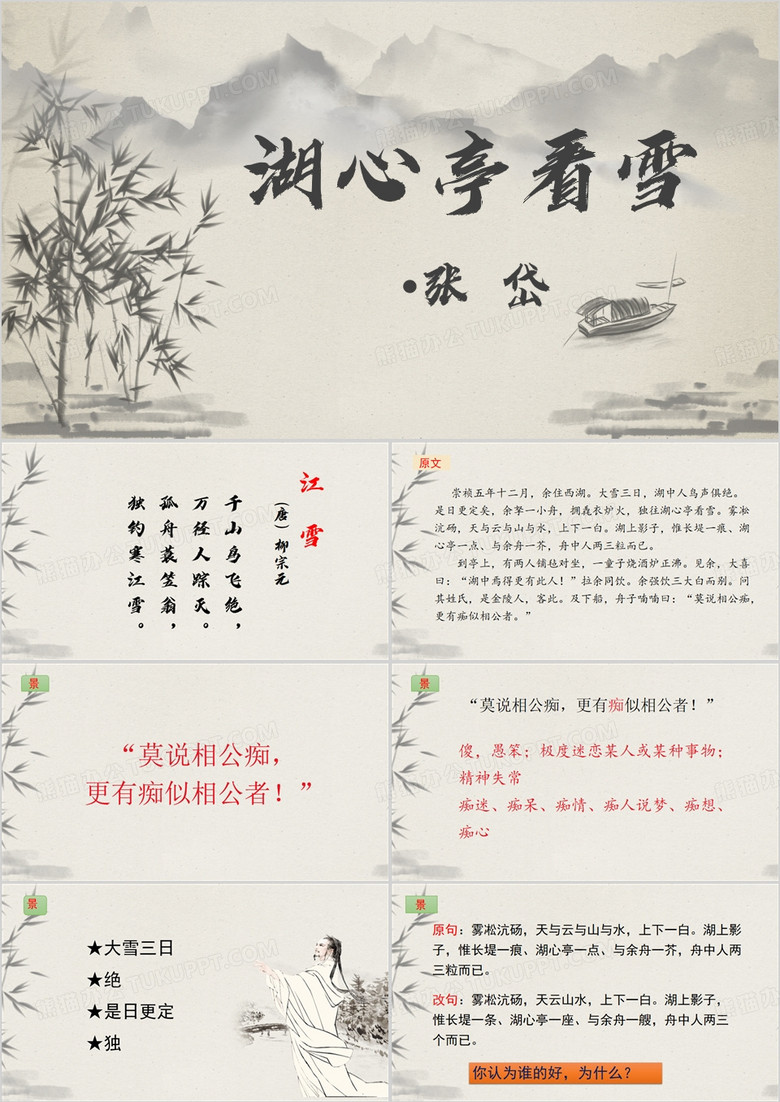 湖心亭看雪
•张 岱
江雪
（唐）柳宗元
千山鸟飞绝，
万径人踪灭。
孤舟蓑笠翁，
独钓寒江雪。
原文
崇祯五年十二月，余住西湖。大雪三日，湖中人鸟声俱绝。
是日更定矣，余拏一小舟，拥毳衣炉火，独往湖心亭看雪。雾凇
沆砀，天与云与山与水，上下一白。湖上影子，惟长堤一痕、湖
心亭一点、与余舟一芥，舟中人两三粒而已。
到亭上，有两人铺毡对坐，一童子烧酒炉正沸。见余，大喜
曰：“湖中焉得更有此人！”拉余同饮。余强饮三大白而别。问
其姓氏，是金陵人，客此。及下船，舟子喃喃曰：“莫说相公痴，
更有痴似相公者。”
景
“莫说相公痴，
更有痴似相公者！”
景
“莫说相公痴，更有痴似相公者！”
傻，愚笨；极度迷恋某人或某种事物；
精神失常
痴迷、痴呆、痴情、痴人说梦、痴想、
痴心
景
★大雪三日
★绝
★是日更定
★独
景
原句：雾凇沆砀，天与云与山与水，上下一白。湖上影
子，惟长堤一痕、湖心亭一点、与余舟一芥，舟中人两
三粒而已。
改句：雾凇沆砀，天云山水，上下一白。湖上影子，
惟长堤一条、湖心亭一座、与余舟一艘，舟中人两三
个而已。
你认为谁的好，为什么？